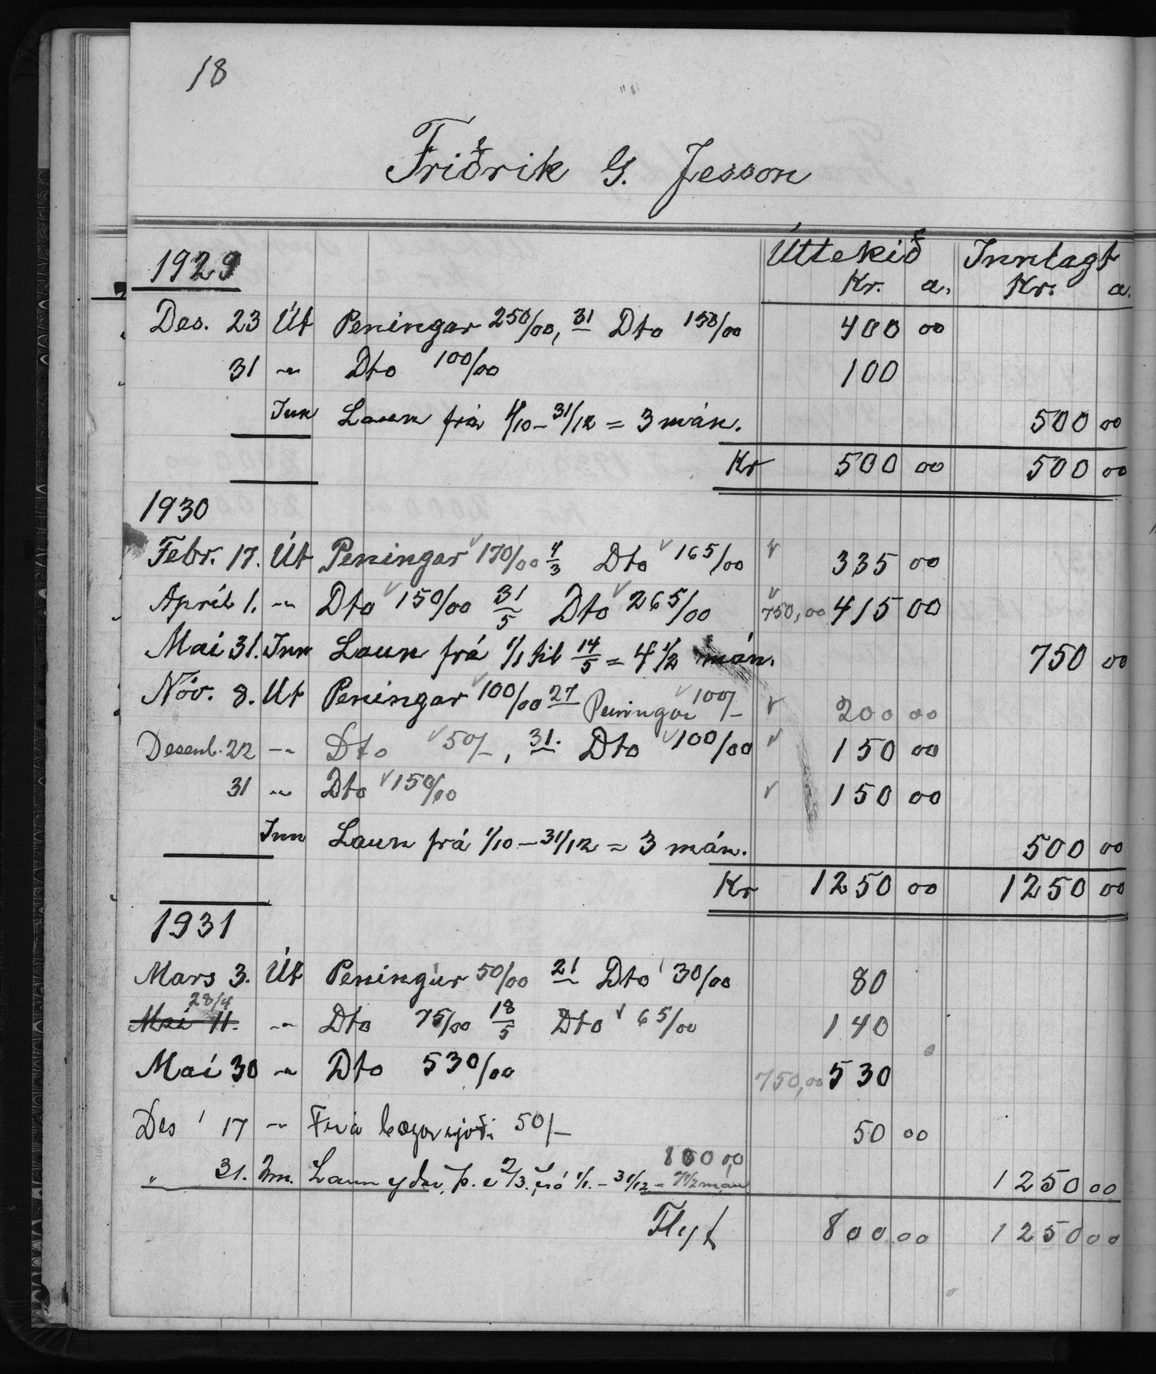 18
Friðrik G. Jesson
Úttekið Innlagt
1929 Kr. a. Kr. a.
Des. 23 Út Peningar 250/00, 31 Dto 150/00 400 00
31 -"- Dto 100/00 100
Inn Laun frá 1/10 - 31/12 = 3 mán. 500 00
Kr 500 00 500 00
1930
Febr. 17. Út Peningar √ 170/00 4/3 Dto √ 165/00 √ 335 00
Apríl 1. -"- Dto √ 150/00 31/5 Dto √ 265/00 √ 750,00 415 00
Maí 31. Inn Laun frá 1/1 til 14/5 = 4 1/2 mán. 750 00
Nóv. 8. Út Peningar √ 100/00 27 Peningar √ 100/- √ 200 00
Desemb. 22 -"- Dto √ 50/-, 31. Dto √ 100/00 √ 150 00
31 -"- Dto √ 150/00 √ 150 00
Inn Laun frá 1/10 - 31/12 = 3 mán. 500 00
Kr 1250 00 1250 00
1931
Mars 3. Út Peningar 50/00 21 Dto 30/00 80
28/4
Maí 11. -"- Dto 75/00 18/5 Dto √ 65/00 140
Maí 30 -"- Dto 530/00 750,00 530
Des 17 -"- Frá bæjarsjóði 50/- 50 00
800,00
" 31. Inn. Laun yðar, þ.e. 2/3. frá 1/1. - 31/12 - 7 1/2 mán 1250 00
Flyt 800 00 1250 00